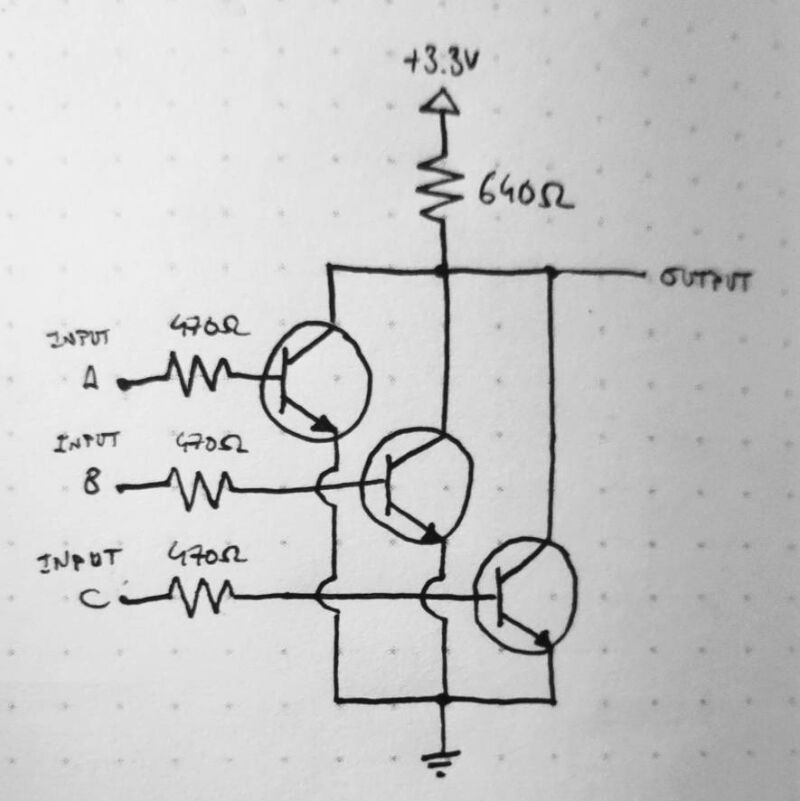 +3.3V
640Ω
OUTPUT
INPUT
A
470Ω
INPUT
B
470Ω
INPUT
C
470Ω